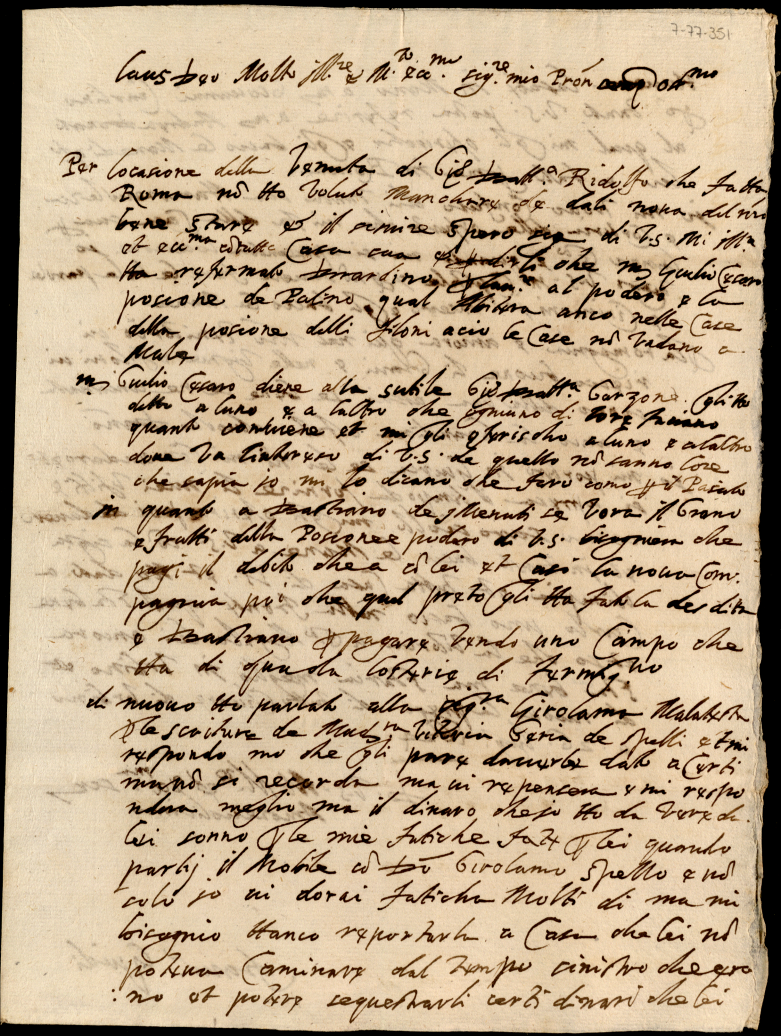 7-77-351
Laus Deo Molto Ill.re et M.to ecc.mo sig.re mio Pron oss.mo
Per locasione della Venuta di Gio batt.a Ridolfo che fatta
Roma nō Ho Voluto Manchare de dali nova del mio
bene stare et il simire spero sia di V.S. Mi Ill.re
et ecc.ma cō tutta Casa sua e dirli che m Giulio Cesare
Ha refermato Berardino al podere e la
posione de Palino qual Abitera anco nelle Case
della posione delli filoni acio le Case nō Vadano a
Male
m Giulio Cesare diene alla sutile Gio batt.a Garzone gli Ho
detto a luno e a laltro che ogniuno di loro faciano
quanto conviene et mi gli oferischo a luno e a laltro
dove Va linteresso di V.S. de quello nō sanno lore
che sapia io mi lo dicano che faro como p il Pasato
in quanto a Bastiano de se Vora il Grano
e frutti della Posione e podere di V.S. bisognira che
pagi il debito che a cō lei et Casi la nova Com
pagnia poi che quel preto gli Ha fatto la desdita
e Bastiano p pagare Vendo uno Campo che
Ha di
di nuovo Ho parlato alla sig.ra Girolama Malatesta
p le scriture de Mad.na Vitoria de Spelli et mi
respondo mo che gli pare daverle dato a Certi
ma nō si recorda ma ci repensera e mi respo
ndera meglio ma il dinaro che io Ho da Vere da
lei sonno p le mie fatiche fatte p lei quando
partij il Mobile cō Girolamo Spello e nō
solo io ci dorai faticha Molti di ma mi
bisognio Hanco reportarla a Casa che lei nō
poteva Caminare dal tempo sinistro che era
no et potere sequestrarli certi dinari che lei